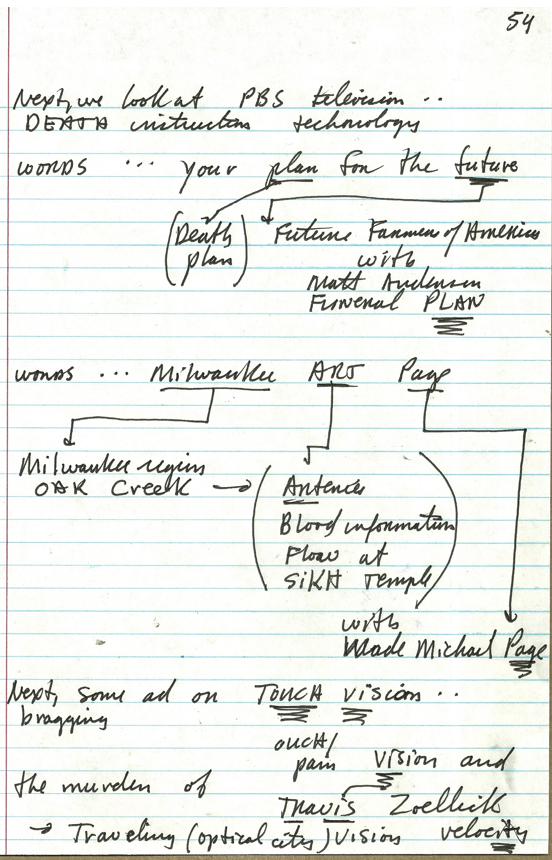 54
Next, we look at PBS television ..
DEATH instruction technology
WORDS ... your plan for the future
(Death plan)
Future Farmers of America
with
Matt Anderson
Funeral PLAN
WORDS ... Milwaukee ART Page
Milwaukee region
OAK Creek →
(Arteries
Blood information
Flow at
SIKH Temple)
with
Wade Michael Page
Next, some ad on TOUCH VISION ..
bragging
OUCH/
pain
VISION and
the murder of
Travis Zoellick
→ Traveling (optical cities) Vision velocity